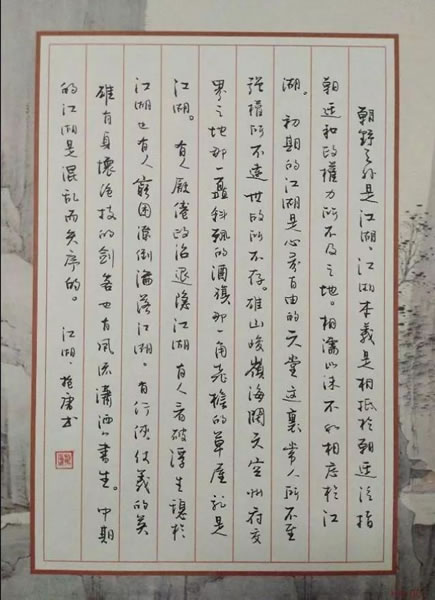 朝野之外是江湖，江湖本義是相抵於朝廷泛指
朝廷和政權力所不及之地。相濡以沫不如相忘於江
湖。初期的江湖是心靈自由的天堂這裏常人所不至
強權所不達世故所不存。雄山峻嶺海闊天空州府交
界之地那一盞斜飄的酒旗那一角老檐的草屋就是
江湖。有人厭倦政治退隱江湖有人看破浮生隱於
江湖也有人窮困潦倒淪落江湖。有行俠仗義的英
雄有身懷絕技的劍客也有風流瀟洒的書生。中期
的江湖是混亂而失序的。 江湖·